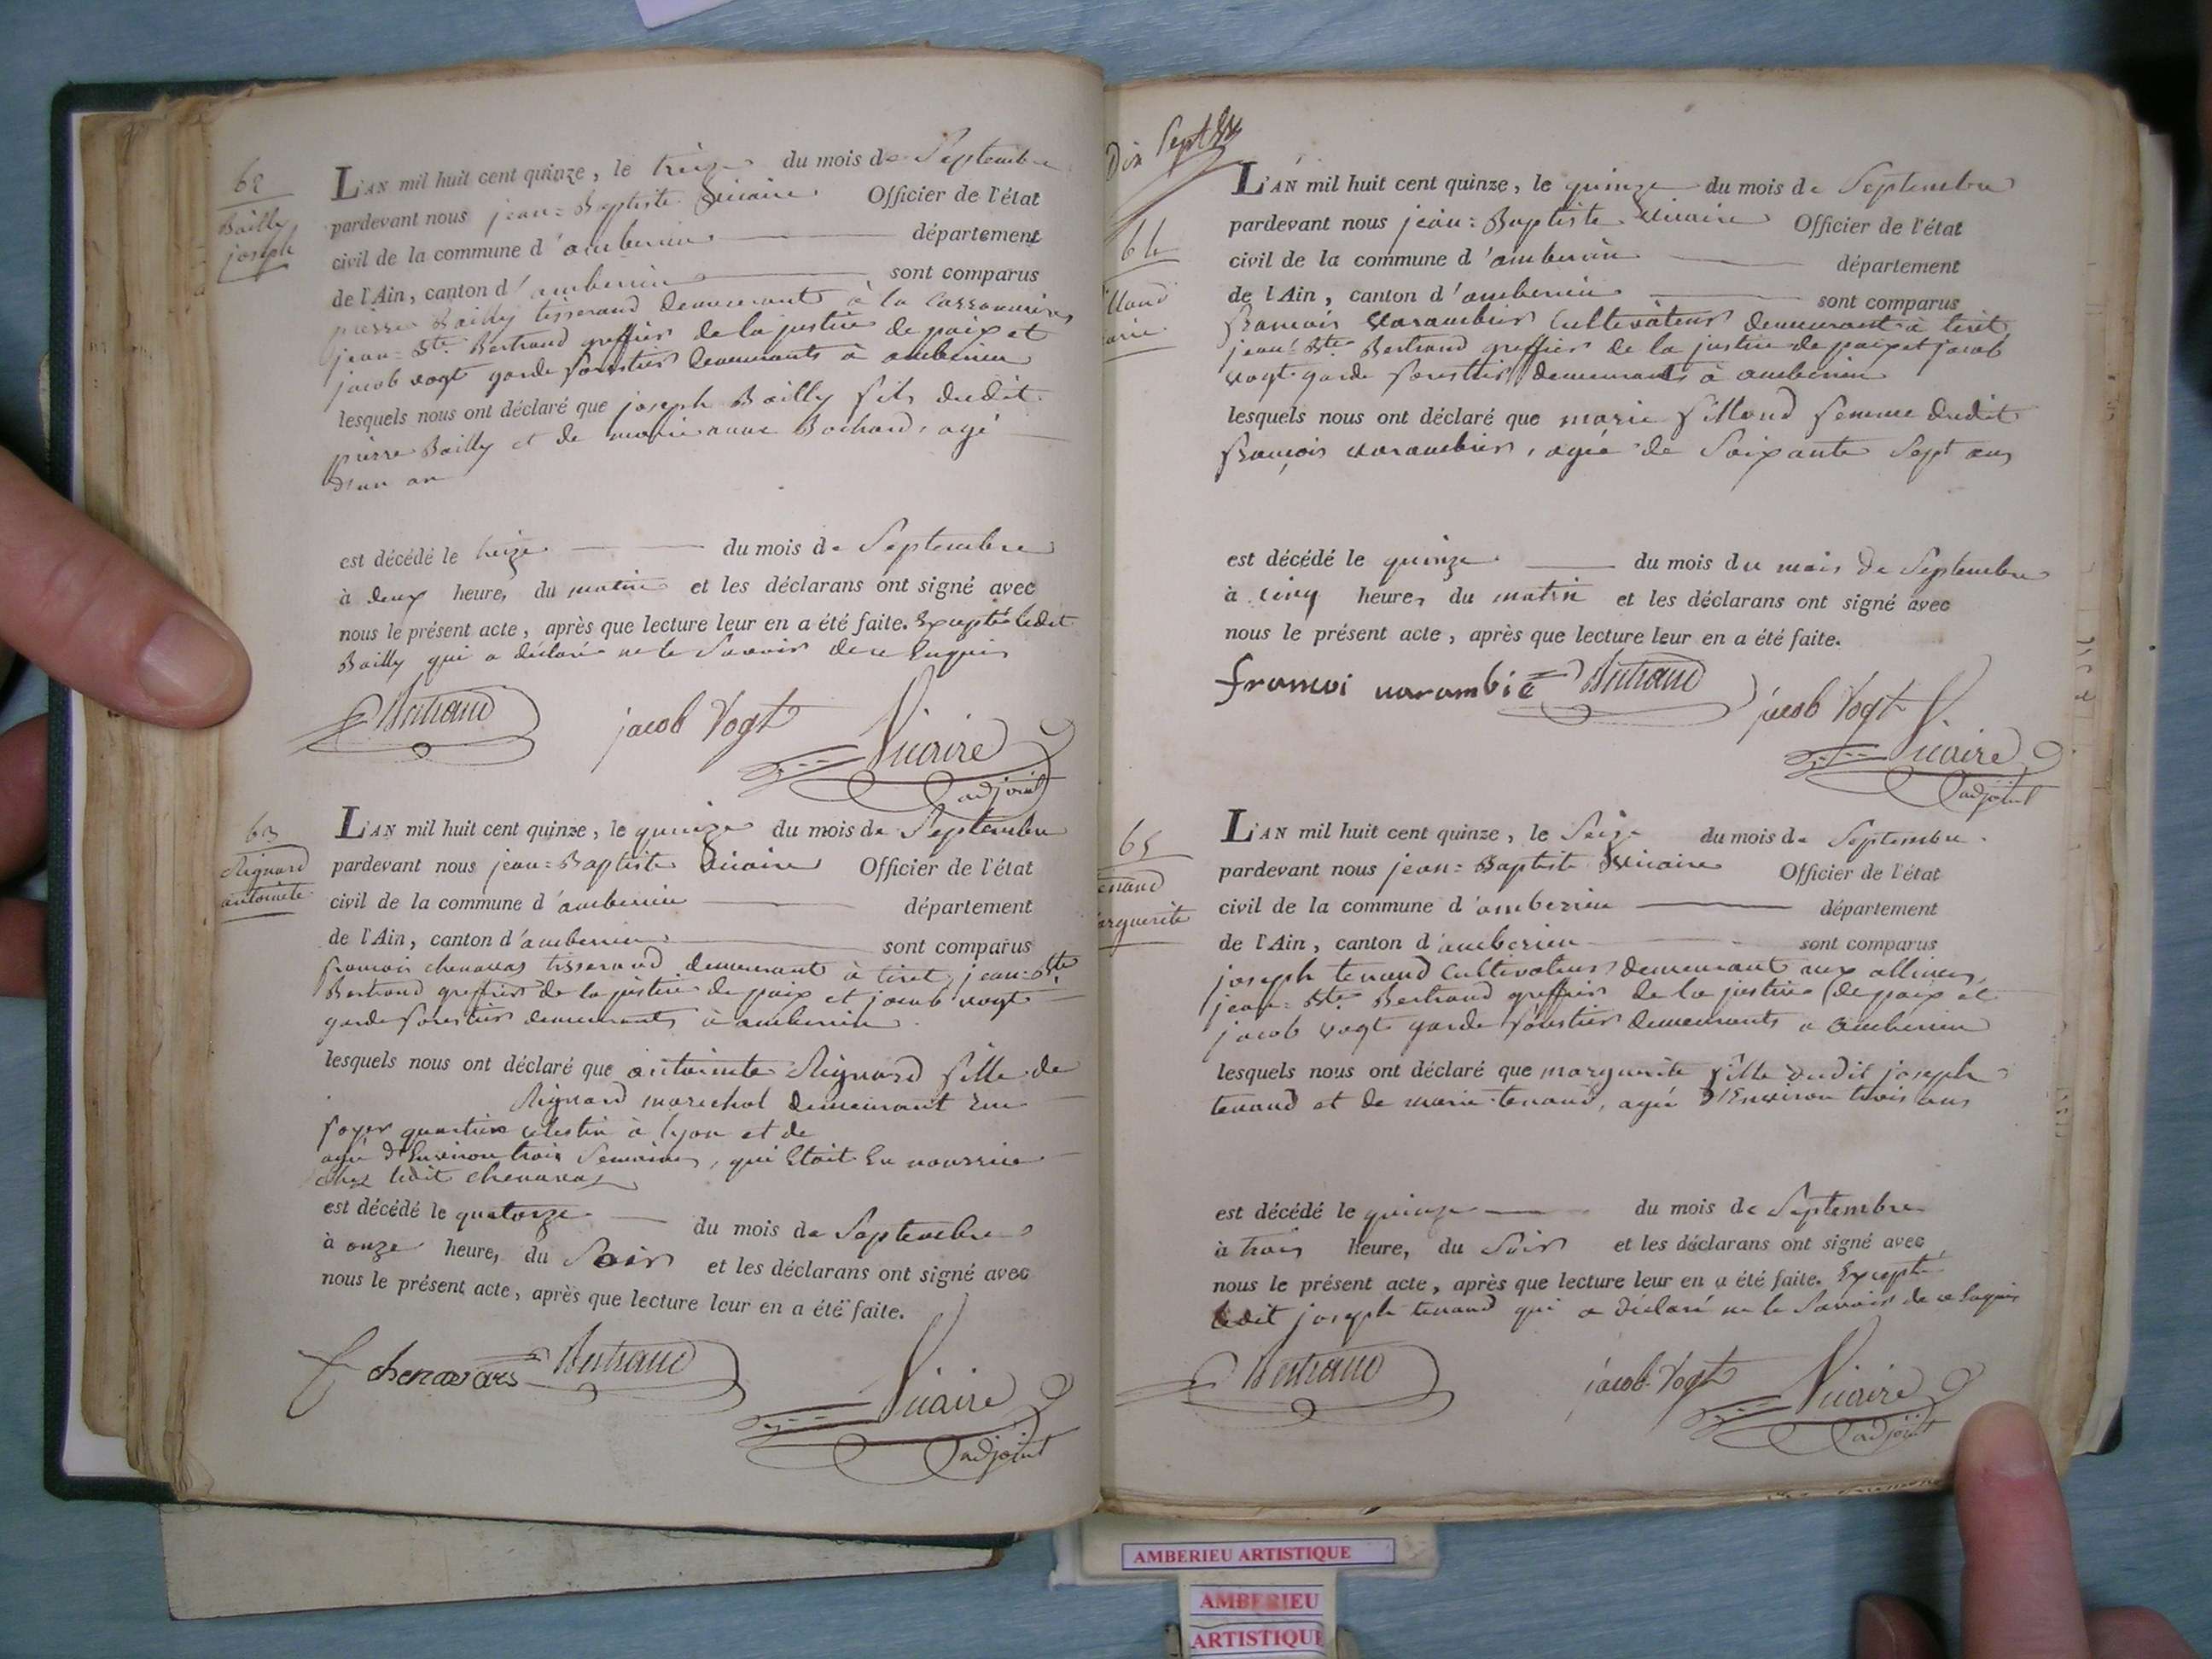 62
Bailly
joseph
L'AN mil huit cent quinze, le treize du mois de Septembre
pardevant nous jean=Baptiste Vicaire Officier de l'état
civil de la commune d'amberieu département
de l'Ain, canton d'amberieu sont comparus
pierre Bailly tisserand demeurant à la
jean=Bte Bertrand greffier de la justice de paix et
jacob vogt garde forestier demeurants à amberieu
lesquels nous ont déclaré que joseph Bailly fils dudit
pierre Bailly et de marie anne Bochard, agé
d'un an
est décédé le treize du mois de Septembre
à deux heures du matin et les déclarans ont signé avec
nous le présent acte, après que lecture leur en a été faite. Excepté ledit
Bailly qui a déclaré ne le Savoir de ce Enquis
Bertrand jacob Vogt Vicaire
adjoint
63
Rignard
antoinete
L'AN mil huit cent quinze, le quinze du mois de Septembre
pardevant nous jean=Baptiste Vicaire Officier de l'état
civil de la commune d'amberieu département
de l'Ain, canton d'amberieu sont comparus
francois chenavas tisserand demeurant à tiret, jean=Bte
Bertrand greffier de la justice de paix et jacob vogt
garde forestier demeurants à amberieu
lesquels nous ont déclaré que antoinete Rignard fille de
Rignard marechal demeurant rue
quartier celestin à lyon et de
agée d'Environ trois Semaines, qui Etait En nourrice
chez ledit chenavas
est décédé le quatorze du mois de Septembre
à onze heures du Soir et les déclarans ont signé avec
nous le présent acte, après que lecture leur en a été faite.
f chenavas Bertrand Vicaire
adjoint
Dix Septbre
64
illoud
arie
L'AN mil huit cent quinze, le quinze du mois de Septembre
pardevant nous jean=Baptiste Vicaire Officier de l'état
civil de la commune d'amberieu département
de l'Ain, canton d'amberieu sont comparus
francois varambier Cultivateur demeurant à tiret,
jean=Bte Bertrand greffier de la justice de paix et jacob
vogt garde forestier demeurants à amberieu
lesquels nous ont déclaré que marie filloud femme dudit
françois varambier, agée de Soixante Sept ans
est décédé le quinze du mois du mois de Septembre
à cinq heures du matin et les déclarans ont signé avec
nous le présent acte, après que lecture leur en a été faite.
francoi varambié Bertrand jacob Vogt
Vicaire
adjoint
65
enand
arguerite
L'AN mil huit cent quinze, le Seize du mois de Septembre
pardevant nous jean=Baptiste Vicaire Officier de l'état
civil de la commune d'amberieu département
de l'Ain, canton d'amberieu sont comparus
joseph tenand Cultivateur demeurant aux allimes,
jean=Bte Bertrand greffier de la justice de paix et
jacob vogt garde forestier demeurants a amberieu
lesquels nous ont déclaré que marguerite fille dudit joseph
tenand et de marie tenand, agée d'Environ trois ans
est décédé le quinze du mois de Septembre
à trois heures du Soir et les déclarans ont signé avec
nous le présent acte, après que lecture leur en a été faite. Excepté
ledit joseph tenand qui a déclaré ne le Savoir de ce Enquis
Bertrand jacob Vogt Vicaire
adjoint
AMBERIEU ARTISTIQUE
AMBERIEU
ARTISTIQUE